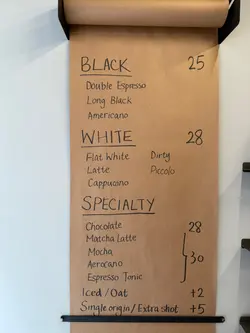 BLACK 25
Double Espresso
Long Black
Americano
WHITE 28
Flat White Dirty
Latte Piccolo
Cappucino
SPECIALTY
Chocolate 28
Matcha Latte
Mocha 30
Aerocano
Espresso Tonic
Iced/Oat +2
Single origin/Extra shot +5